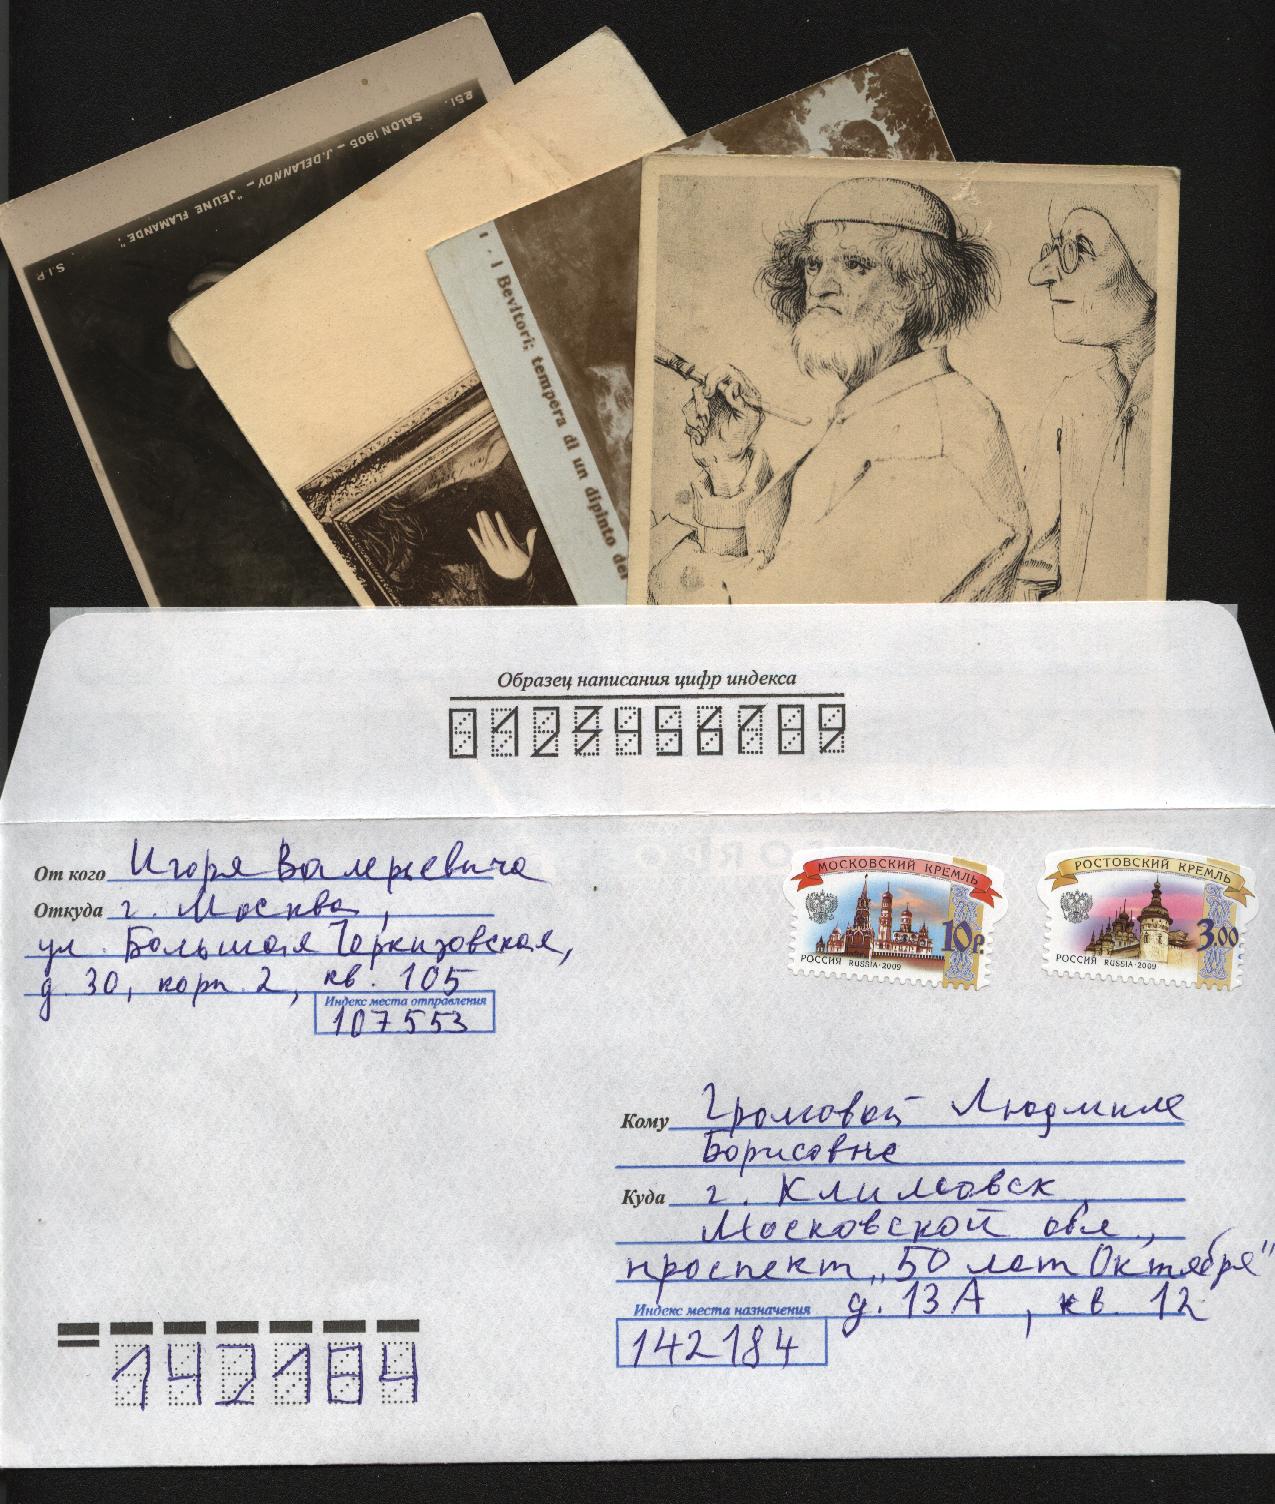 251.
SALON 1905 – J. DELANNOY – "JEUNE FLAMANDE".
S.I.P.
I Bevitori; tempera di un dipinto del
Образец написания цифр индекса
0123456789
От кого Игоря Валерьевича
Откуда г. Москва,
ул. Большая Черкизовская,
д. 30, корп. 2, кв. 105
Индекс места отправления
107553
МОСКОВСКИЙ КРЕМЛЬ
10р
РОССИЯ RUSSIA·2009
РОСТОВСКИЙ КРЕМЛЬ
3.00
РОССИЯ RUSSIA·2009
Кому Громовой Людмиле
Борисовне
Куда г. Климовск,
Московской обл.,
проспект „50 лет Октября"
д. 13А, кв. 12
Индекс места назначения
142184
142184